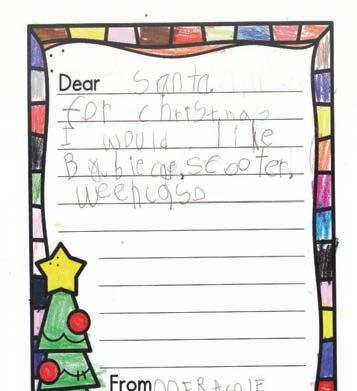 Dear Santa
for christmas
I would like
Babie car, scooter,
From